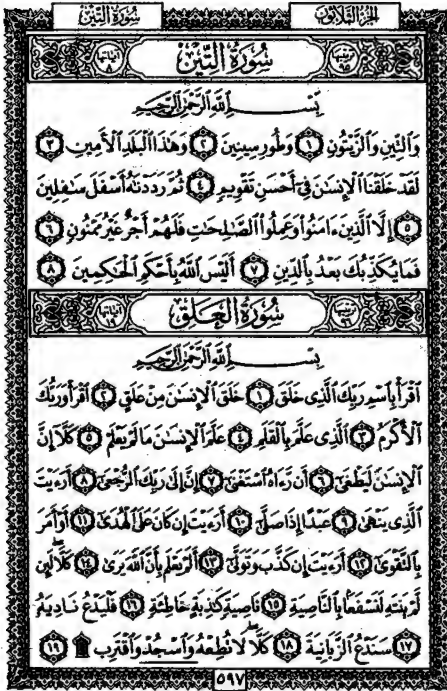 سُورَةُ التِّينِ الجُزْءُ الثَّلَاثُونَ
ترتيبها ٩٥ سُورَةُ التِّينِ آياتها ٨
بِسْمِ اللَّهِ الرَّحْمَٰنِ الرَّحِيمِ
وَالتِّينِ وَالزَّيْتُونِ ١ وَطُورِ سِينِينَ ٢ وَهَٰذَا الْبَلَدِ الْأَمِينِ ٣
لَقَدْ خَلَقْنَا الْإِنسَٰنَ فِي أَحْسَنِ تَقْوِيمٍ ٤ ثُمَّ رَدَدْنَٰهُ أَسْفَلَ سَٰفِلِينَ
٥ إِلَّا الَّذِينَ ءَامَنُوا وَعَمِلُوا الصَّٰلِحَٰتِ فَلَهُمْ أَجْرٌ غَيْرُ مَمْنُونٍ ٦
فَمَا يُكَذِّبُكَ بَعْدُ بِالدِّينِ ٧ أَلَيْسَ اللَّهُ بِأَحْكَمِ الْحَٰكِمِينَ ٨
ترتيبها ٩٦ سُورَةُ الْعَلَقِ آياتها ١٩
بِسْمِ اللَّهِ الرَّحْمَٰنِ الرَّحِيمِ
اقْرَأْ بِاسْمِ رَبِّكَ الَّذِي خَلَقَ ١ خَلَقَ الْإِنسَٰنَ مِنْ عَلَقٍ ٢ اقْرَأْ وَرَبُّكَ
الْأَكْرَمُ ٣ الَّذِي عَلَّمَ بِالْقَلَمِ ٤ عَلَّمَ الْإِنسَٰنَ مَا لَمْ يَعْلَمْ ٥ كَلَّا إِنَّ
الْإِنسَٰنَ لَيَطْغَىٰ ٦ أَن رَّءَاهُ اسْتَغْنَىٰ ٧ إِنَّ إِلَىٰ رَبِّكَ الرُّجْعَىٰ ٨ أَرَءَيْتَ
الَّذِي يَنْهَىٰ ٩ عَبْدًا إِذَا صَلَّىٰ ١٠ أَرَءَيْتَ إِن كَانَ عَلَى الْهُدَىٰ ١١ أَوْ أَمَرَ
بِالتَّقْوَىٰ ١٢ أَرَءَيْتَ إِن كَذَّبَ وَتَوَلَّىٰ ١٣ أَلَمْ يَعْلَم بِأَنَّ اللَّهَ يَرَىٰ ١٤ كَلَّا لَئِن
لَّمْ يَنتَهِ لَنَسْفَعًا بِالنَّاصِيَةِ ١٥ نَاصِيَةٍ كَٰذِبَةٍ خَاطِئَةٍ ١٦ فَلْيَدْعُ نَادِيَهُ
١٧ سَنَدْعُ الزَّبَانِيَةَ ١٨ كَلَّا لَا تُطِعْهُ وَاسْجُدْ وَاقْتَرِب ۩ ١٩
٥٩٧